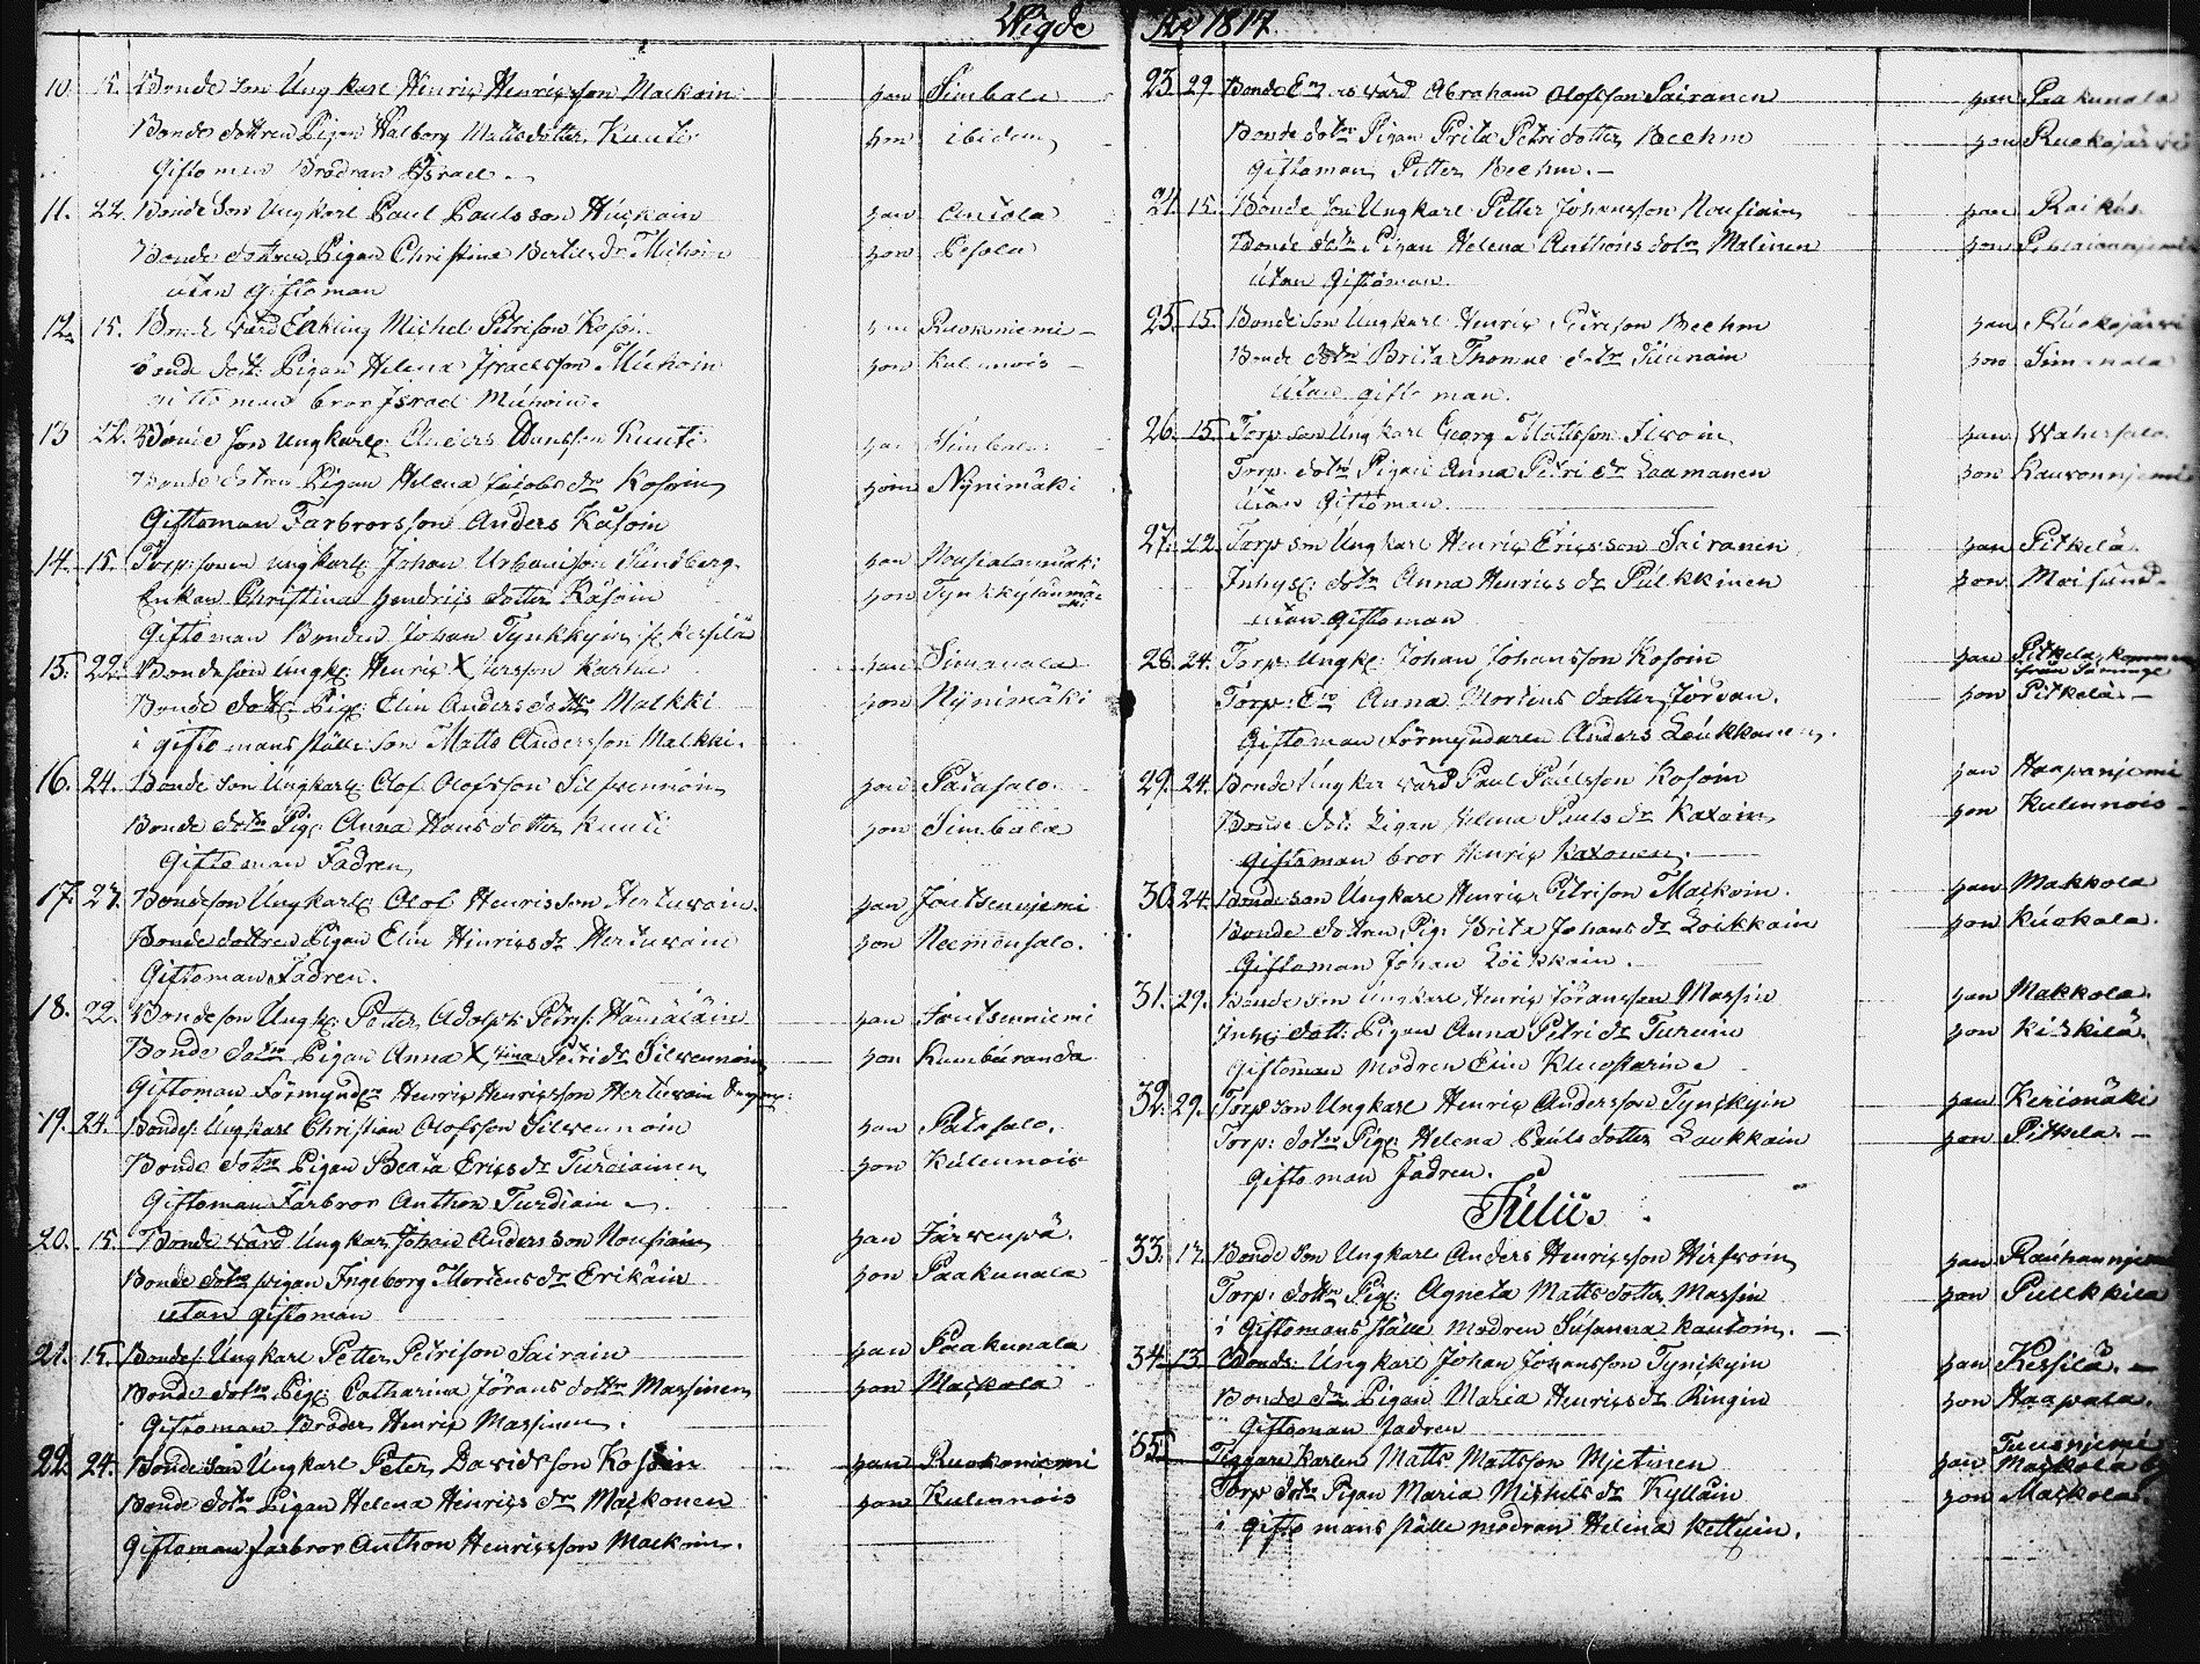 Wigde År 1817.
10. 15. Bonde son Ungkarl Henric Henricsson Mackoin han Simbala
Bonde dottren Pigan Walborg Mattsdotter Kuuti hon ibidem
Giftoman Brodran Israel.
11. 22. Bonde Son Ungkarl Paul Paulsson han Antola
Bonde dottren Pigan Christina dr hon Pesola
utan Giftoman
12. 15. Enkling Michel Petrison Kosoin Ruokoniemi
Bonde dott: Pigan Helena Israelsson hon Kulennois
giftoman bror Israel
13 22. Bonde son Ungkarl: Anders Kuuti han Simbala
Bonde dotren Pigan Helena Jacobs dr Kosoin hon Nÿnimäki
Giftoman Farbrorsson Anders Kåsoin
14. 15. Torp: sonen ungkarl: Johan Urbanison Sundberg han Nousialanmäki
Enkan Christina Hendrics dotter Kåsoin hon Tynkkylänmäki
Giftoman Bonden Johan Tynkkyin Kessilä
15. 22. Bondeson Ungk: Henric Xtersson Karhu han Simanala
Bonde dott: Pig: Elin Anders dottr Malkki hon Nÿnimäki
i giftomans ställe son Matts Andersson Malkki.
16. 24. Bonde son Ungkarl: Olof Olofsson Silfvennoin han Patasalo.
Bonde dottr Pig: Anna Hans dotter Kuuti hon Simbala
Giftoman Fadren
17. 23. Bondeson Ungkarl: Olof Henricsson Hertuvain. han Joutsenniemi
Bonde dottren Pigan Elin Hinrics dr Hertuvain hon Neemensalo.
Giftoman Fadren.
18. 22. Bondeson Ungk: Petter Adolph Petris: Hämäläin han Joutsenniemi
Bonde dottr Pigan Anna Xstina Petri dr Silvennoin hon Kumburanda
Giftoman Förmyndr Henric Henricsson Hertuvain
19. 24. Bondes: Ungkarl Christian Olofsson Silvennoin han Patasalo.
Bonde dottr Pigan Beata Erics dr Turdiainen hon Kulennois
Giftoman Farbror Anthon Turdiain
20. 15. Bonde vård Ungkar Johan Andersson Nousiain han Järvenpä.
Bonde dottr pigan Ingeborg Mortens dr Erikäin hon Paakunala
utan giftoman
21. 15. Bondes: Ungkarl Petter Petrison Sairain han Paakunala
Bonde dottr Pig: Catharina Jörans dottr Massinen hon Mackola
Giftoman Broder Henric Massinen.
22. 24. Bonde son Ungkarl Peter Davidsson Kosoin han Ruokoniemi
Bonde dottr Pigan Helena Hinrics dr Mackonen hon Kulennois
Giftoman farbror Anthon Henricsson Mackoin.
23. 29. Bonde vård Abraham Olofsson Sairanen han Paakunala
Bonde dottr Pigan Brita Petri dotter Beehm hon Ruokojärvi
giftoman Petter Beehm.
24. 15. Bonde son Ungkarl Petter Johansson Nousiain han
Bonde dottr Pigan Helena Anthons dottr Malinen hon
utan Giftoman.
25. 15. Bonde son Ungkarl Henric Petrison Beehm han Ruokojärvi
Bonde dottr Brita Thomae dottr hon Simanala
utan giftoman.
26. 15. Torp son Ungkarl Georg Mattsson Ilvoin han Wahersalo
Torp. dottr Pigan Anna Petri dr Laamanen hon
utan Giftoman.
27. 22. Torp son Ungkarl Henric Ericsson Sairanen han Pitkelä.
Inhys: dottr Anna Henrics dr Pulkkinen hon Moisund.
utan Giftoman
28. 24. Torp: Ungk: Johan Johansson Kosoin han Pitkelä
från Sämmge
Torp: En Anna Mortens dotter Jordan. hon Pitkelä.
Giftoman Förmyndaren Anders Loukkonen.
29. 24. Bonde Ungkar vård Paul Paulsson Kosoin han Haapaniemi
Bonde dot: Pigan Helena Pauls dr Kaxoin hon Kulennois
giftoman bror Henric Kaxonen.
30. 24. Bonde son Ungkarl Henric Petrison Mackoin. han Makkola
Bonde dottren Pig: Brita Johans dr Loikkain hon Kuokala.
Giftoman Johan Loikkain.
31. 29. Bonde son Ungkarl Henric Jöransson Massin han Makkola.
Inhs: dott: Pigan Anna Petri dr Turuin hon Kiskilä.
Giftoman modren Elin
32. 29. Torp son Ungkarl Henric Andersson Tynckyin han Kerimäki
Torp: dottr Pig: Helena Pauls dotter Laukkain hon Pitkelä.
Giftoman Fadren.
Julii
33. 12. Bonde son Ungkarl Anders Henricsson Hirfvoin han
Torp: dottr Pig: Agneta Matts dotter Massin hon Pullkkila
i Giftomans ställe modren Susanna Kautoin.
34. 13 Bonds: Ungkarl Johan Johansson Tynckyin han Kessilä.
Bonde dr Pigan Maria Henrics dr Ringin hon Haapala.
Giftoman fadren
35. Tiggare Karlen Matts Mattsson Mjetinen han Tuunjemi
Mackola by
Torp dottr Pigan Maria Michels dr Kylläin hon Mackola.
i giftomans ställe modran Helena Kettuin.